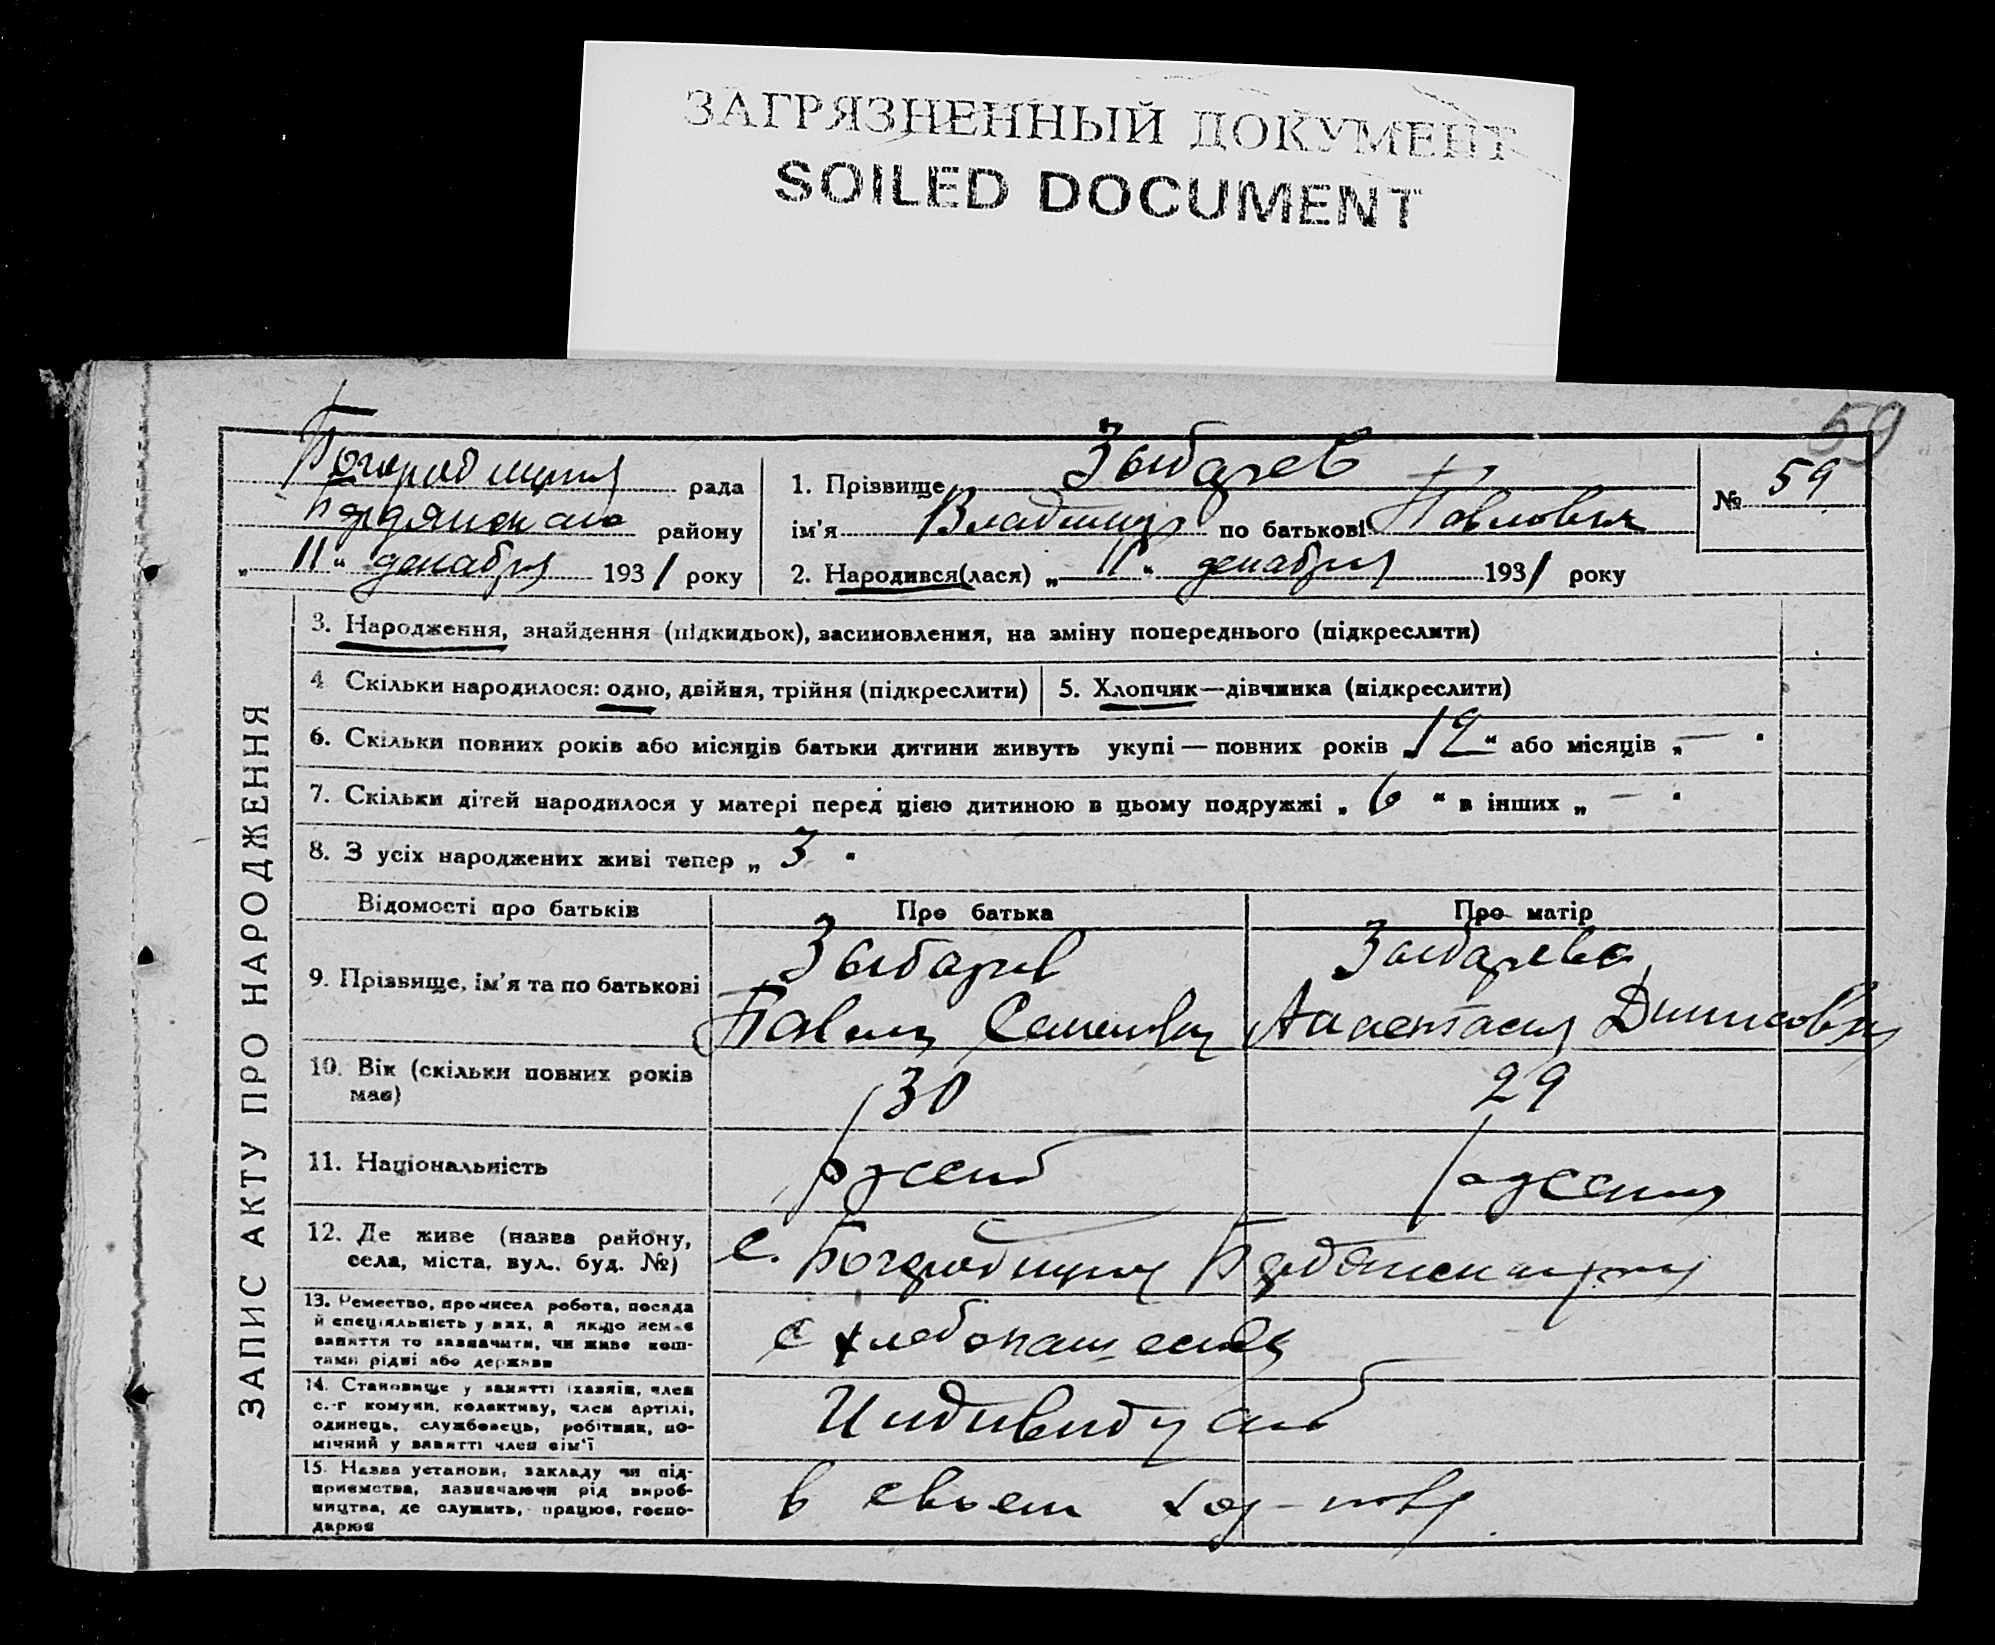 ЗАГРЯЗНЕННЫЙ ДОКУМЕНТ
SOILED DOCUMENT
59
рада
району
„ 11 “ декабря 1931 року
1. Прізвище Зыбарев
ім'я Владимир по батькові Павлович
2. Народився(лася) „ 11 “ декабря 1931 року
№ 59
ЗАПИС АКТУ ПРО НАРОДЖЕННЯ
3. Народження, знайдення (підкидьок), засиновлення, на зміну попереднього (підкреслити)
4 Скільки народилося: одно, двійня, трійня (підкреслити)
5. Хлопчик—дівчинка (підкреслити)
6. Скільки повних років або місяців батьки дитини живуть укупі — повних років „ 12 “ або місяців „ — “
7. Скільки дітей народилося у матері перед цією дитиною в цьому подружжі „ 6 “ в інших „ — “
8. З усіх народжених живі тепер „ 3 “
Відомості про батьків
Про батька
Про матір
9. Прізвище, ім'я та по батькові
Зыбарев
Павел Семенович
Зыбарева
Анастасия Денисовна
10. Вік (скільки повних років має)
30
29
11. Національність
русский
русская
12. Де живе (назва району,
села, міста, вул., буд. №)
с.
13. Ремество, промисел робота, посада
й спеціяльність у них, а якщо немає
заняття то зазначити, чи живе кош-
тами рідні або держави
с хлебопашества
14. Становище у занятті (хазяїн, член
с.-г комуни, колективу, член артілі,
одинець, службовець, робітник, по-
мічний у занятті член сім'ї
15. Назва установи, закладу чи під-
приємства, зазначаючи рід вироб-
ництва, де служить, працює, госпо-
дарює
в своем